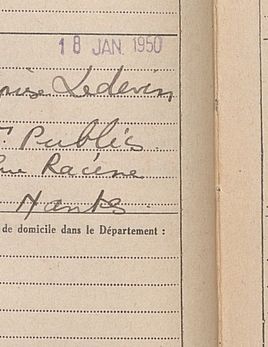 18 JAN. 1950
Ledevin
Publics
Rue Racine
Nantes
de domicile dans le Département :